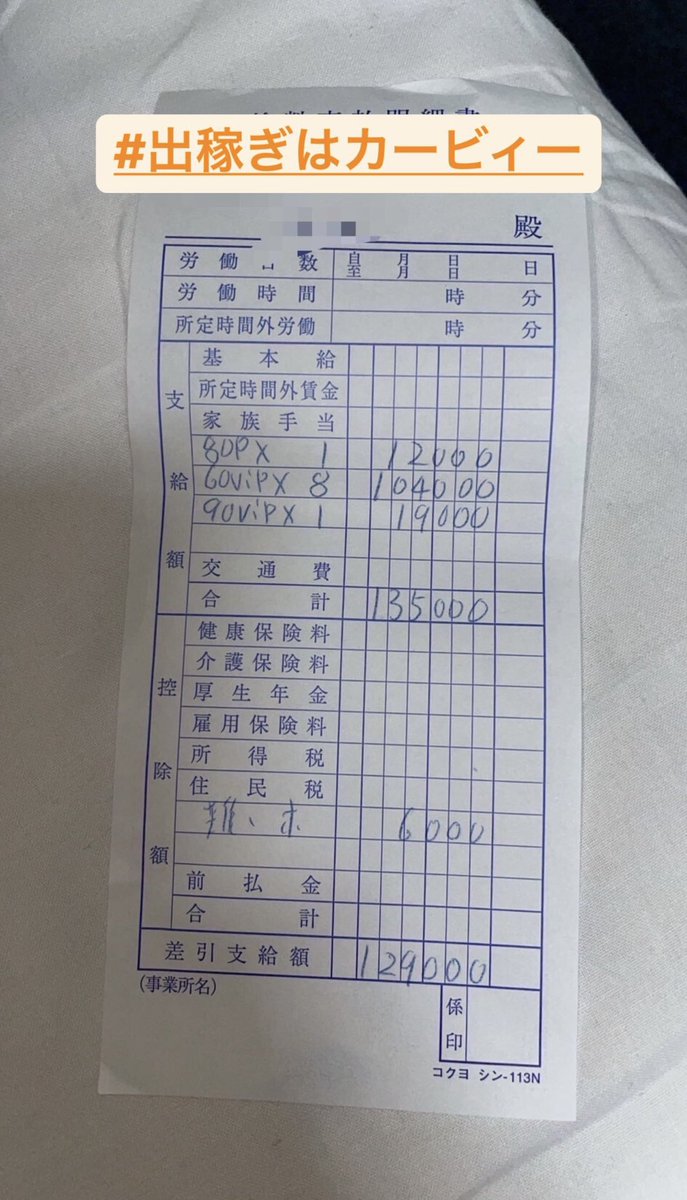 #出稼ぎはカービィー
殿
労働日数 自 月 日 至 月 日 日
労働時間 時 分
所定時間外労働 時 分
支給額
基本給
所定時間外賃金
家族手当
80P X 1 12000
60viP X 8 104000
90viP X 1 19000
交通費
合計 135000
控除額
健康保険料
介護保険料
厚生年金
雇用保険料
所得税
住民税
6000
前払金
合計
差引支給額 129000
(事業所名)
係印
コクヨ シン-113N